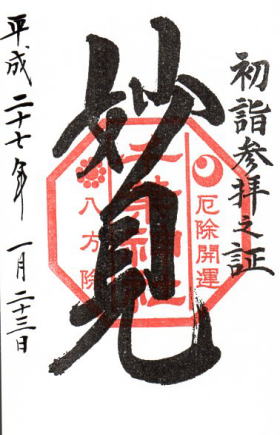 初詣参拝之証
厄除開運
妙見
八方除
平成二十七年 一月二十三日